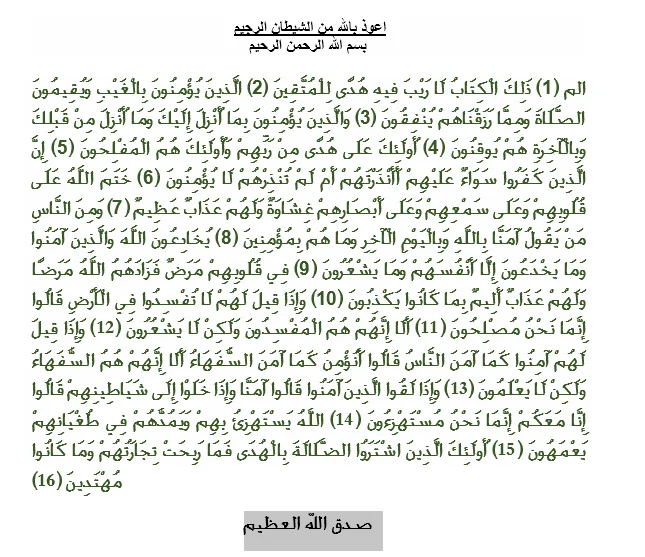 اعوذ بالله من الشيطان الرجيم
بسم الله الرحمن الرحيم
الم (1) ذَلِكَ الْكِتَابُ لَا رَيْبَ فِيهِ هُدًى لِلْمُتَّقِينَ (2) الَّذِينَ يُؤْمِنُونَ بِالْغَيْبِ وَيُقِيمُونَ
الصَّلَاةَ وَمِمَّا رَزَقْنَاهُمْ يُنْفِقُونَ (3) وَالَّذِينَ يُؤْمِنُونَ بِمَا أُنْزِلَ إِلَيْكَ وَمَا أُنْزِلَ مِنْ قَبْلِكَ
وَبِالْآخِرَةِ هُمْ يُوقِنُونَ (4) أُولَئِكَ عَلَى هُدًى مِنْ رَبِّهِمْ وَأُولَئِكَ هُمُ الْمُفْلِحُونَ (5) إِنَّ
الَّذِينَ كَفَرُوا سَوَاءٌ عَلَيْهِمْ أَأَنْذَرْتَهُمْ أَمْ لَمْ تُنْذِرْهُمْ لَا يُؤْمِنُونَ (6) خَتَمَ اللَّهُ عَلَى
قُلُوبِهِمْ وَعَلَى سَمْعِهِمْ وَعَلَى أَبْصَارِهِمْ غِشَاوَةٌ وَلَهُمْ عَذَابٌ عَظِيمٌ (7) وَمِنَ النَّاسِ
مَنْ يَقُولُ آمَنَّا بِاللَّهِ وَبِالْيَوْمِ الْآخِرِ وَمَا هُمْ بِمُؤْمِنِينَ (8) يُخَادِعُونَ اللَّهَ وَالَّذِينَ آمَنُوا
وَمَا يَخْدَعُونَ إِلَّا أَنْفُسَهُمْ وَمَا يَشْعُرُونَ (9) فِي قُلُوبِهِمْ مَرَضٌ فَزَادَهُمُ اللَّهُ مَرَضًا
وَلَهُمْ عَذَابٌ أَلِيمٌ بِمَا كَانُوا يَكْذِبُونَ (10) وَإِذَا قِيلَ لَهُمْ لَا تُفْسِدُوا فِي الْأَرْضِ قَالُوا
إِنَّمَا نَحْنُ مُصْلِحُونَ (11) أَلَا إِنَّهُمْ هُمُ الْمُفْسِدُونَ وَلَكِنْ لَا يَشْعُرُونَ (12) وَإِذَا قِيلَ
لَهُمْ آمِنُوا كَمَا آمَنَ النَّاسُ قَالُوا أَنُؤْمِنُ كَمَا آمَنَ السُّفَهَاءُ أَلَا إِنَّهُمْ هُمُ السُّفَهَاءُ
وَلَكِنْ لَا يَعْلَمُونَ (13) وَإِذَا لَقُوا الَّذِينَ آمَنُوا قَالُوا آمَنَّا وَإِذَا خَلَوْا إِلَى شَيَاطِينِهِمْ قَالُوا
إِنَّا مَعَكُمْ إِنَّمَا نَحْنُ مُسْتَهْزِئُونَ (14) اللَّهُ يَسْتَهْزِئُ بِهِمْ وَيَمُدُّهُمْ فِي طُغْيَانِهِمْ
يَعْمَهُونَ (15) أُولَئِكَ الَّذِينَ اشْتَرَوُا الضَّلَالَةَ بِالْهُدَى فَمَا رَبِحَتْ تِجَارَتُهُمْ وَمَا كَانُوا
مُهْتَدِينَ (16)
صدق الله العظيم